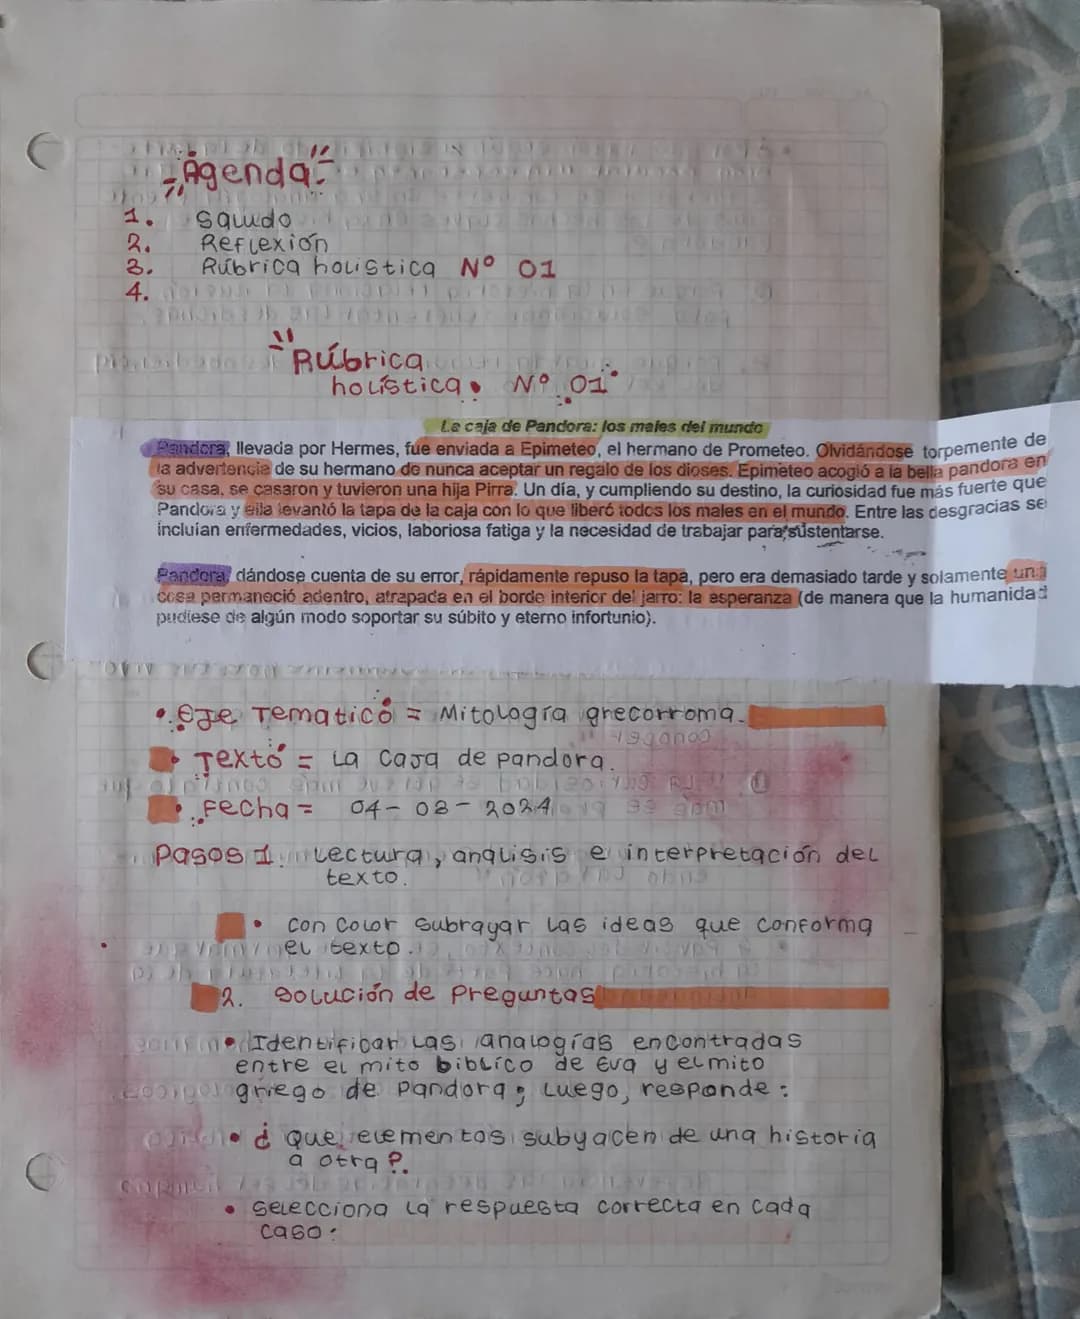 Agenda
1. Saludo
2. Reflexión
3. Rúbrica holistica Nº 01
4.
Rúbrica
holística. Nº 01
La caja de Pandora: los males del mundo
Pandora, llevada por Hermes, fue enviada a Epimeteo, el hermano de Prometeo. Olvidándose torpemente de
la advertencia de su hermano de nunca aceptar un regalo de los dioses. Epimeteo acogió a la bella pandora en
su casa, se casaron y tuvieron una hija Pirra. Un día, y cumpliendo su destino, la curiosidad fue más fuerte que
Pandora y ella levantó la tapa de la caja con lo que liberó todos los males en el mundo. Entre las desgracias se
incluían enfermedades, vicios, laboriosa fatiga y la necesidad de trabajar para sustentarse.
Pandora, dándose cuenta de su error, rápidamente repuso la tapa, pero era demasiado tarde y solamente una
cosa permaneció adentro, atrapada en el borde interior del jarro: la esperanza (de manera que la humanidad
pudiese de algún modo soportar su súbito y eterno infortunio).
• Eje Tematico = Mitología grecorroma.
• Texto = La Caja de pandora.
• Fecha = 04-08-2024
Pasos 1. Lectura, analisis e interpretación del
texto.
• Con Color Subrayar Las ideas que conforma
el texto.
2. Solución de Preguntas
• Identificar Las analogías encontradas
entre el mito biblico de Eva y el mito
griego de Pandora; Luego, responde:
• ¿ Que elementos subyacen de una historia
a otra?.
• Selecciona la respuesta correcta en cada
caso: